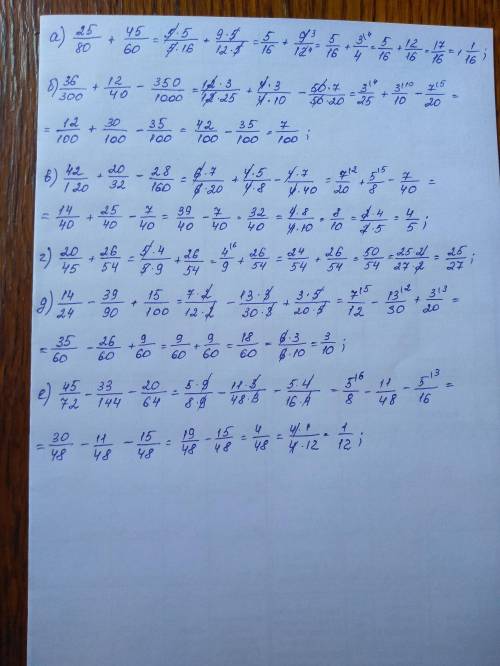 а) 25/80 + 45/60 = 5·5/5·16 + 9·5/12·5 = 5/16 + 9³/12⁴ = 5/16 + 3\⁴/4 = 5/16 + 12/16 = 17/16 = 1 1/16;
б) 36/300 + 12/40 - 350/1000 = 12·3/12·25 + 4·3/4·10 - 50·7/50·20 = 3\⁴/25 + 3\¹⁰/10 - 7\⁵/20 =
= 12/100 + 30/100 - 35/100 = 42/100 - 35/100 = 7/100;
в) 42/120 + 20/32 - 28/160 = 6·7/6·20 + 4·5/4·8 - 4·7/4·40 = 7\²/20 + 5\⁵/8 - 7/40 =
= 14/40 + 25/40 - 7/40 = 39/40 - 7/40 = 32/40 = 4·8/4·10 = 8/10 = 2·4/2·5 = 4/5;
г) 20/45 + 26/54 = 5·4/5·9 + 26/54 = 4\⁶/9 + 26/54 = 24/54 + 26/54 = 50/54 = 25·2/27·2 = 25/27;
д) 14/24 - 39/90 + 15/100 = 7·2/12·2 - 13·3/30·3 + 3·5/20·5 = 7\⁵/12 - 13\²/30 + 3\³/20 =
= 35/60 - 26/60 + 9/60 = 9/60 + 9/60 = 18/60 = 6·3/6·10 = 3/10;
е) 45/72 - 33/144 - 20/64 = 5·9/8·9 - 11·3/48·3 - 5·4/16·4 = 5\⁶/8 - 11/48 - 5\³/16 =
= 30/48 - 11/48 - 15/48 = 19/48 - 15/48 = 4/48 = 4·1/4·12 = 1/12;